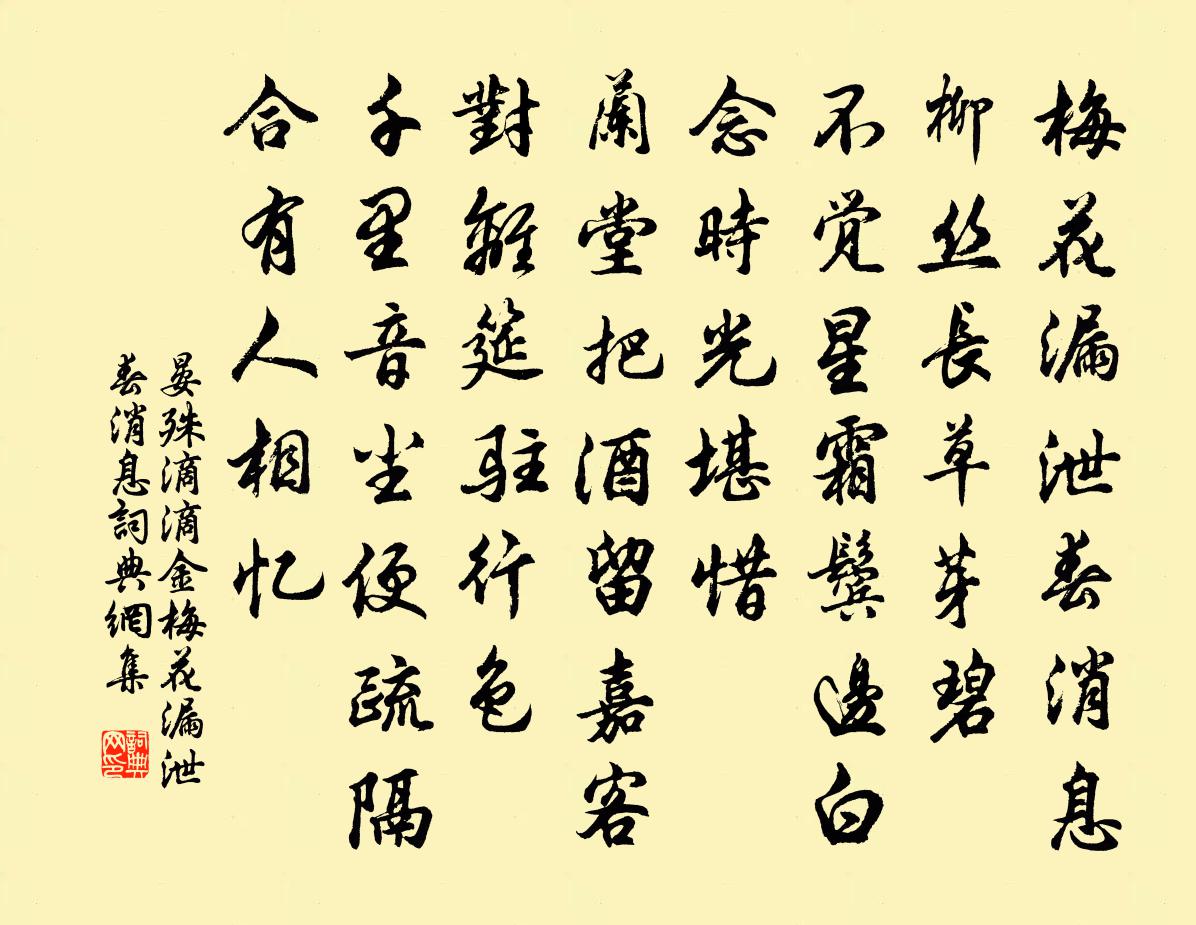 梅花漏泄春消息
柳丝長草芽碧
不觉星霜鬓邊白
念時光堪惜
蘭堂把酒留嘉客
對離筵駐行色
千里音尘便疏隔
合有人相忆
晏殊滴滴金梅花漏泄
春消息詞典網集
詞典
网印